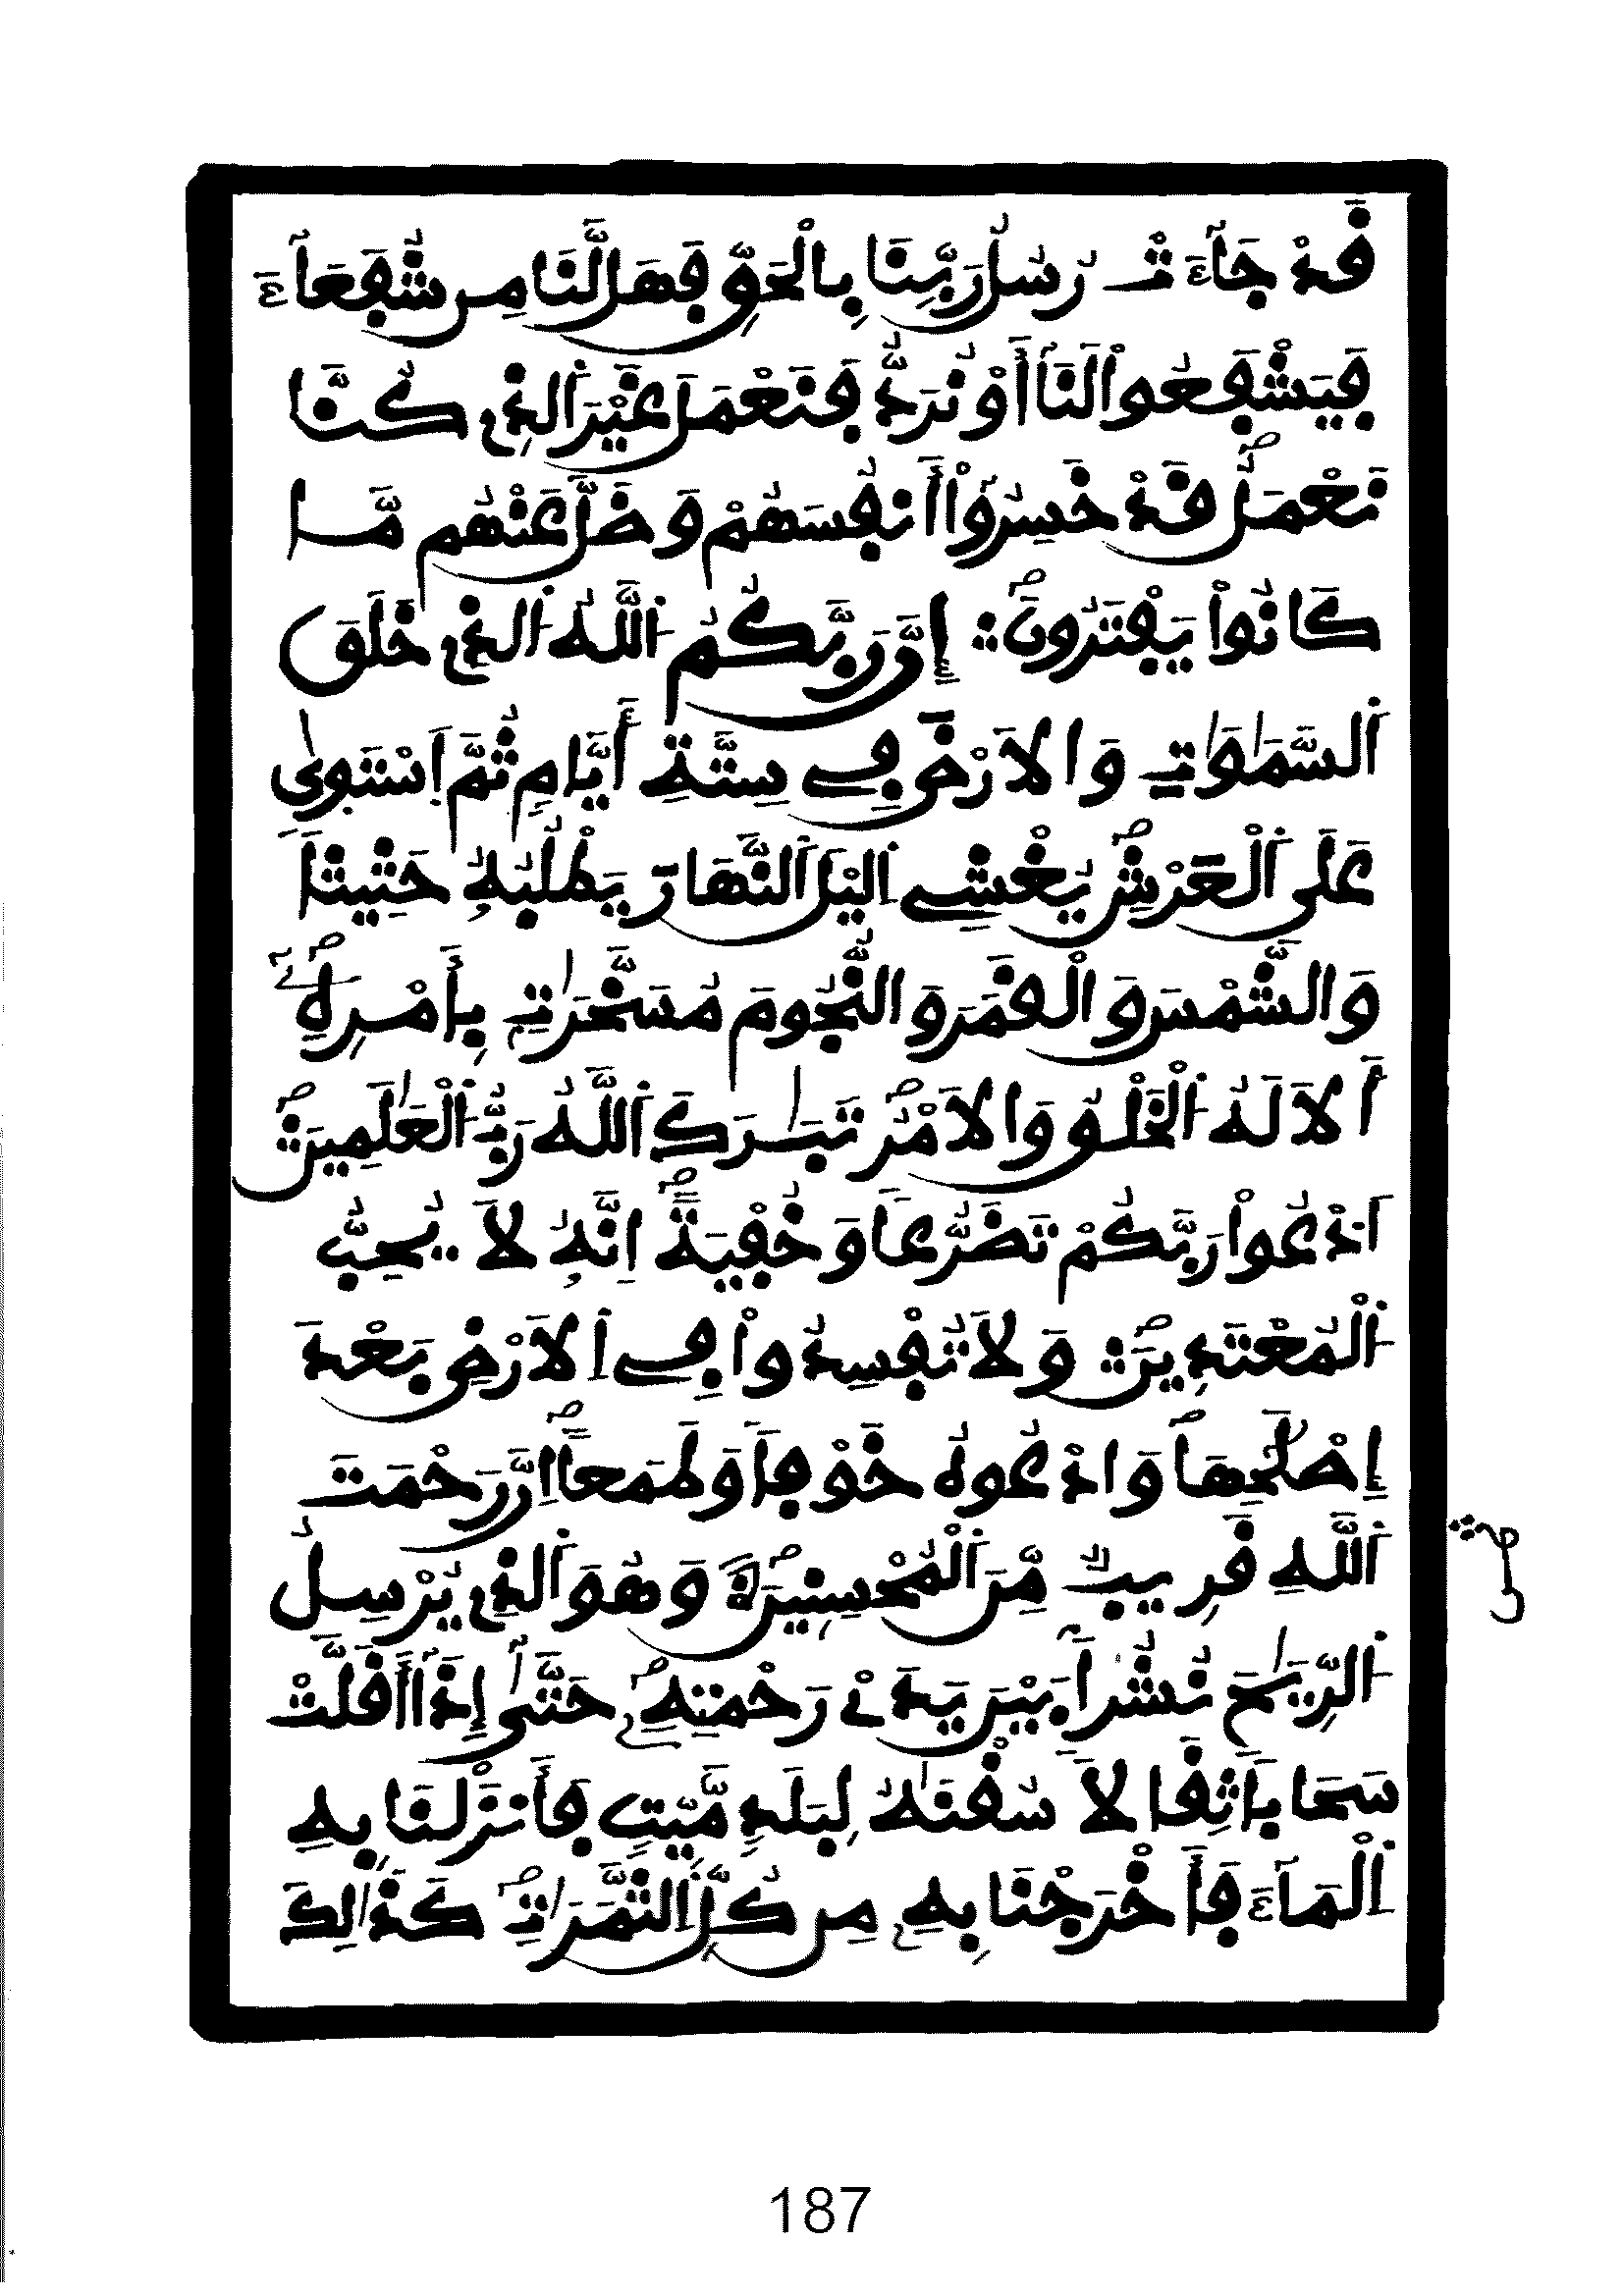 قَدْ جَآءَتْ رُسُلُ رَبِّنَا بِالْحَقِّ فَهَل لَّنَا مِن شُفَعَآءَ
فَيَشْفَعُواْ لَنَآ أَوْ نُرَدُّ فَنَعْمَلَ غَيْرَ اَ۬لذِے كُنَّا
نَعْمَلُ قَدْ خَسِرُوٓاْ أَنفُسَهُمْ وَضَلَّ عَنْهُم مَّا
كَانُواْ يَفْتَرُونَ ۞ إِنَّ رَبَّكُمُ اُ۬للَّهُ اُ۬لذِے خَلَقَ
اَ۬لسَّمَٰوَٰتِ وَالَارْضَ فِے سِتَّةِ أَيَّامٖ ثُمَّ اَ۪سْتَوَىٰ
عَلَى اَ۬لْعَرْشِ يُغْشِے اِ۬ليْلَ اَ۬لنَّهَارَ يَطْلُبُهُۥ حَثِيثاٗ
وَالشَّمْسَ وَالْقَمَرَ وَالنُّجُومَ مُسَخَّرَٰتِۢ بِأَمْرِهِۦٓ
أَلَا لَهُ اُ۬لْخَلْقُ وَالَامْرُ تَبَٰرَكَ اَ۬للَّهُ رَبُّ اُ۬لْعَٰلَمِينَ
اَ۟دْعُواْ رَبَّكُمْ تَضَرُّعاٗ وَخُفْيَةً اِنَّهُۥ لَا يُحِبُّ
اُ۬لْمُعْتَدِينَ وَلَا تُفْسِدُواْ فِے اِ۬لَارْضِ بَعْدَ
إِصْلَٰحِهَا وَادْعُوهُ خَوْفاٗ وَطَمَعاً اِنَّ رَحْمَتَ
اَ۬للَّهِ قَرِيبٞ مِّنَ اَ۬لْمُحْسِنِينَ وَهُوَ اَ۬لذِے يُرْسِلُ
اُ۬لرِّيَٰحَ نُشُراَۢ بَيْنَ يَدَےْ رَحْمَتِهِۦ حَتَّىٰٓ إِذَآ أَقَلَّتْ
سَحَاباٗ ثِقَالاٗ سُقْنَٰهُ لِبَلَدٖ مَّيِّتٖ فَأَنزَلْنَا بِهِ
اِ۬لْمَآءَ فَأَخْرَجْنَا بِهِۦ مِن كُلِّ اِ۬لثَّمَرَٰتِ كَذَٰلِكَ
187